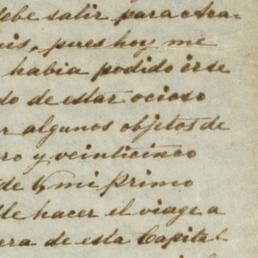 debe salir para Aca-
is, pues hoy me
habia podido irse
do de estar ocioso
r algunos objetos de
ro y veinticinco
de y mi primo
le hacer el viage a
era de esta Capital